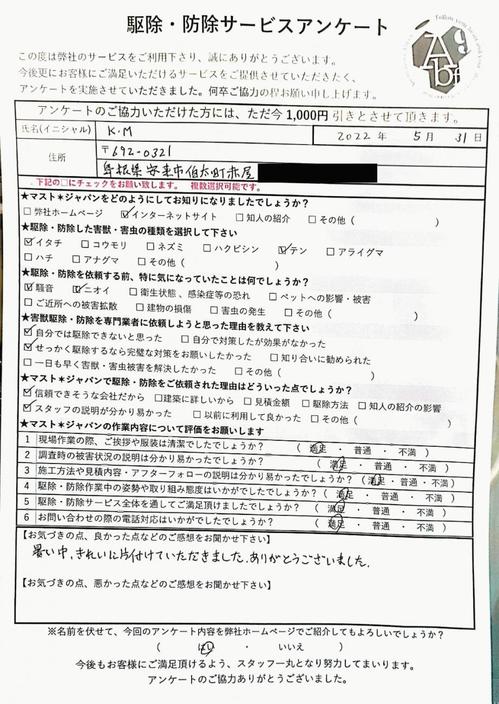 駆除・防除サービスアンケート
この度は弊社のサービスをご利用下さり、誠にありがとうございます。
今後更にお客様にご満足いただけるサービスをご提供させていただきたく、
アンケートを実施させていただきました。何卒ご協力の程お願い申し上げます。
アンケートのご協力いただけた方には、ただ今 1,000円 引きとさせて頂きます。
氏名(イニシャル) K・M 2022 年 5 月 31 日
住所 〒692-0321
島根県安来市伯太町赤屋
・下記の□にチェックをお願い致します。 複数選択可能です。
★マスト✶ジャパンをどのようにしてお知りになりましたでしょうか？
□弊社ホームページ ☑インターネットサイト □知人の紹介 □その他（ ）
★駆除・防除した害獣・害虫の種類を選択して下さい
☑イタチ □コウモリ □ネズミ □ハクビシン ☑テン □アライグマ
□ハチ □アナグマ □その他（ ）
★駆除・防除を依頼する前、特に気になっていたことは何でしょうか？
☑騒音 ☑ニオイ □衛生状態、感染症等の恐れ □ペットへの影響・被害
□ご近所への被害拡散 □建物の損傷 □害虫の発生 □その他（ ）
★害獣駆除・防除を専門業者に依頼しようと思った理由を教えて下さい
☑自分では駆除できないと思った □自分で対策したが効果がなかった
☑せっかく駆除するなら完璧な対策をお願いしたかった □知り合いに勧められた
□一日も早く害獣・害虫被害を解決したかった □その他（ ）
★マスト✶ジャパンで駆除・防除をご依頼された理由はどういった点でしょうか？
☑信頼できそうな会社だから □建築に詳しいから □見積金額 □駆除方法 □知人の紹介の影響
☑スタッフの説明が分かり易かった □以前に利用して良かった □その他（ ）
★マスト✶ジャパンの作業内容について評価をお願いします
1 現場作業の際、ご挨拶や服装は清潔でしたでしょうか？ （ 満足 ・ 普通 ・ 不満 ）
2 調査時の被害状況の説明は分かり易かったでしょうか？ （ 満足 ・ 普通 ・ 不満 ）
3 施工方法や見積内容・アフターフォローの説明は分かり易かったでしょうか？ （ 満足 ・ 普通 ・ 不満 ）
4 駆除・防除作業中の姿勢や取り組み態度はいかがでしたでしょうか？ （ 満足 ・ 普通 ・ 不満 ）
5 駆除・防除サービス全体を通してご満足頂けましたでしょうか？ （ 満足 ・ 普通 ・ 不満 ）
6 お問い合わせの際の電話対応はいかがでしたでしょうか？ （ 満足 ・ 普通 ・ 不満 ）
【お気づきの点、良かった点などのご感想をお聞かせ下さい】
暑い中、きれいに片付けていただきました。ありがとうございました。
【お気づきの点、悪かった点などのご感想をお聞かせ下さい】
※名前を伏せて、今回のアンケート内容を弊社ホームページでご紹介してもよろしいでしょうか？
（ はい ・ いいえ ）
今後もお客様にご満足頂けるよう、スタッフ一丸となり努力してまいります。
アンケートのご協力ありがとうございました。